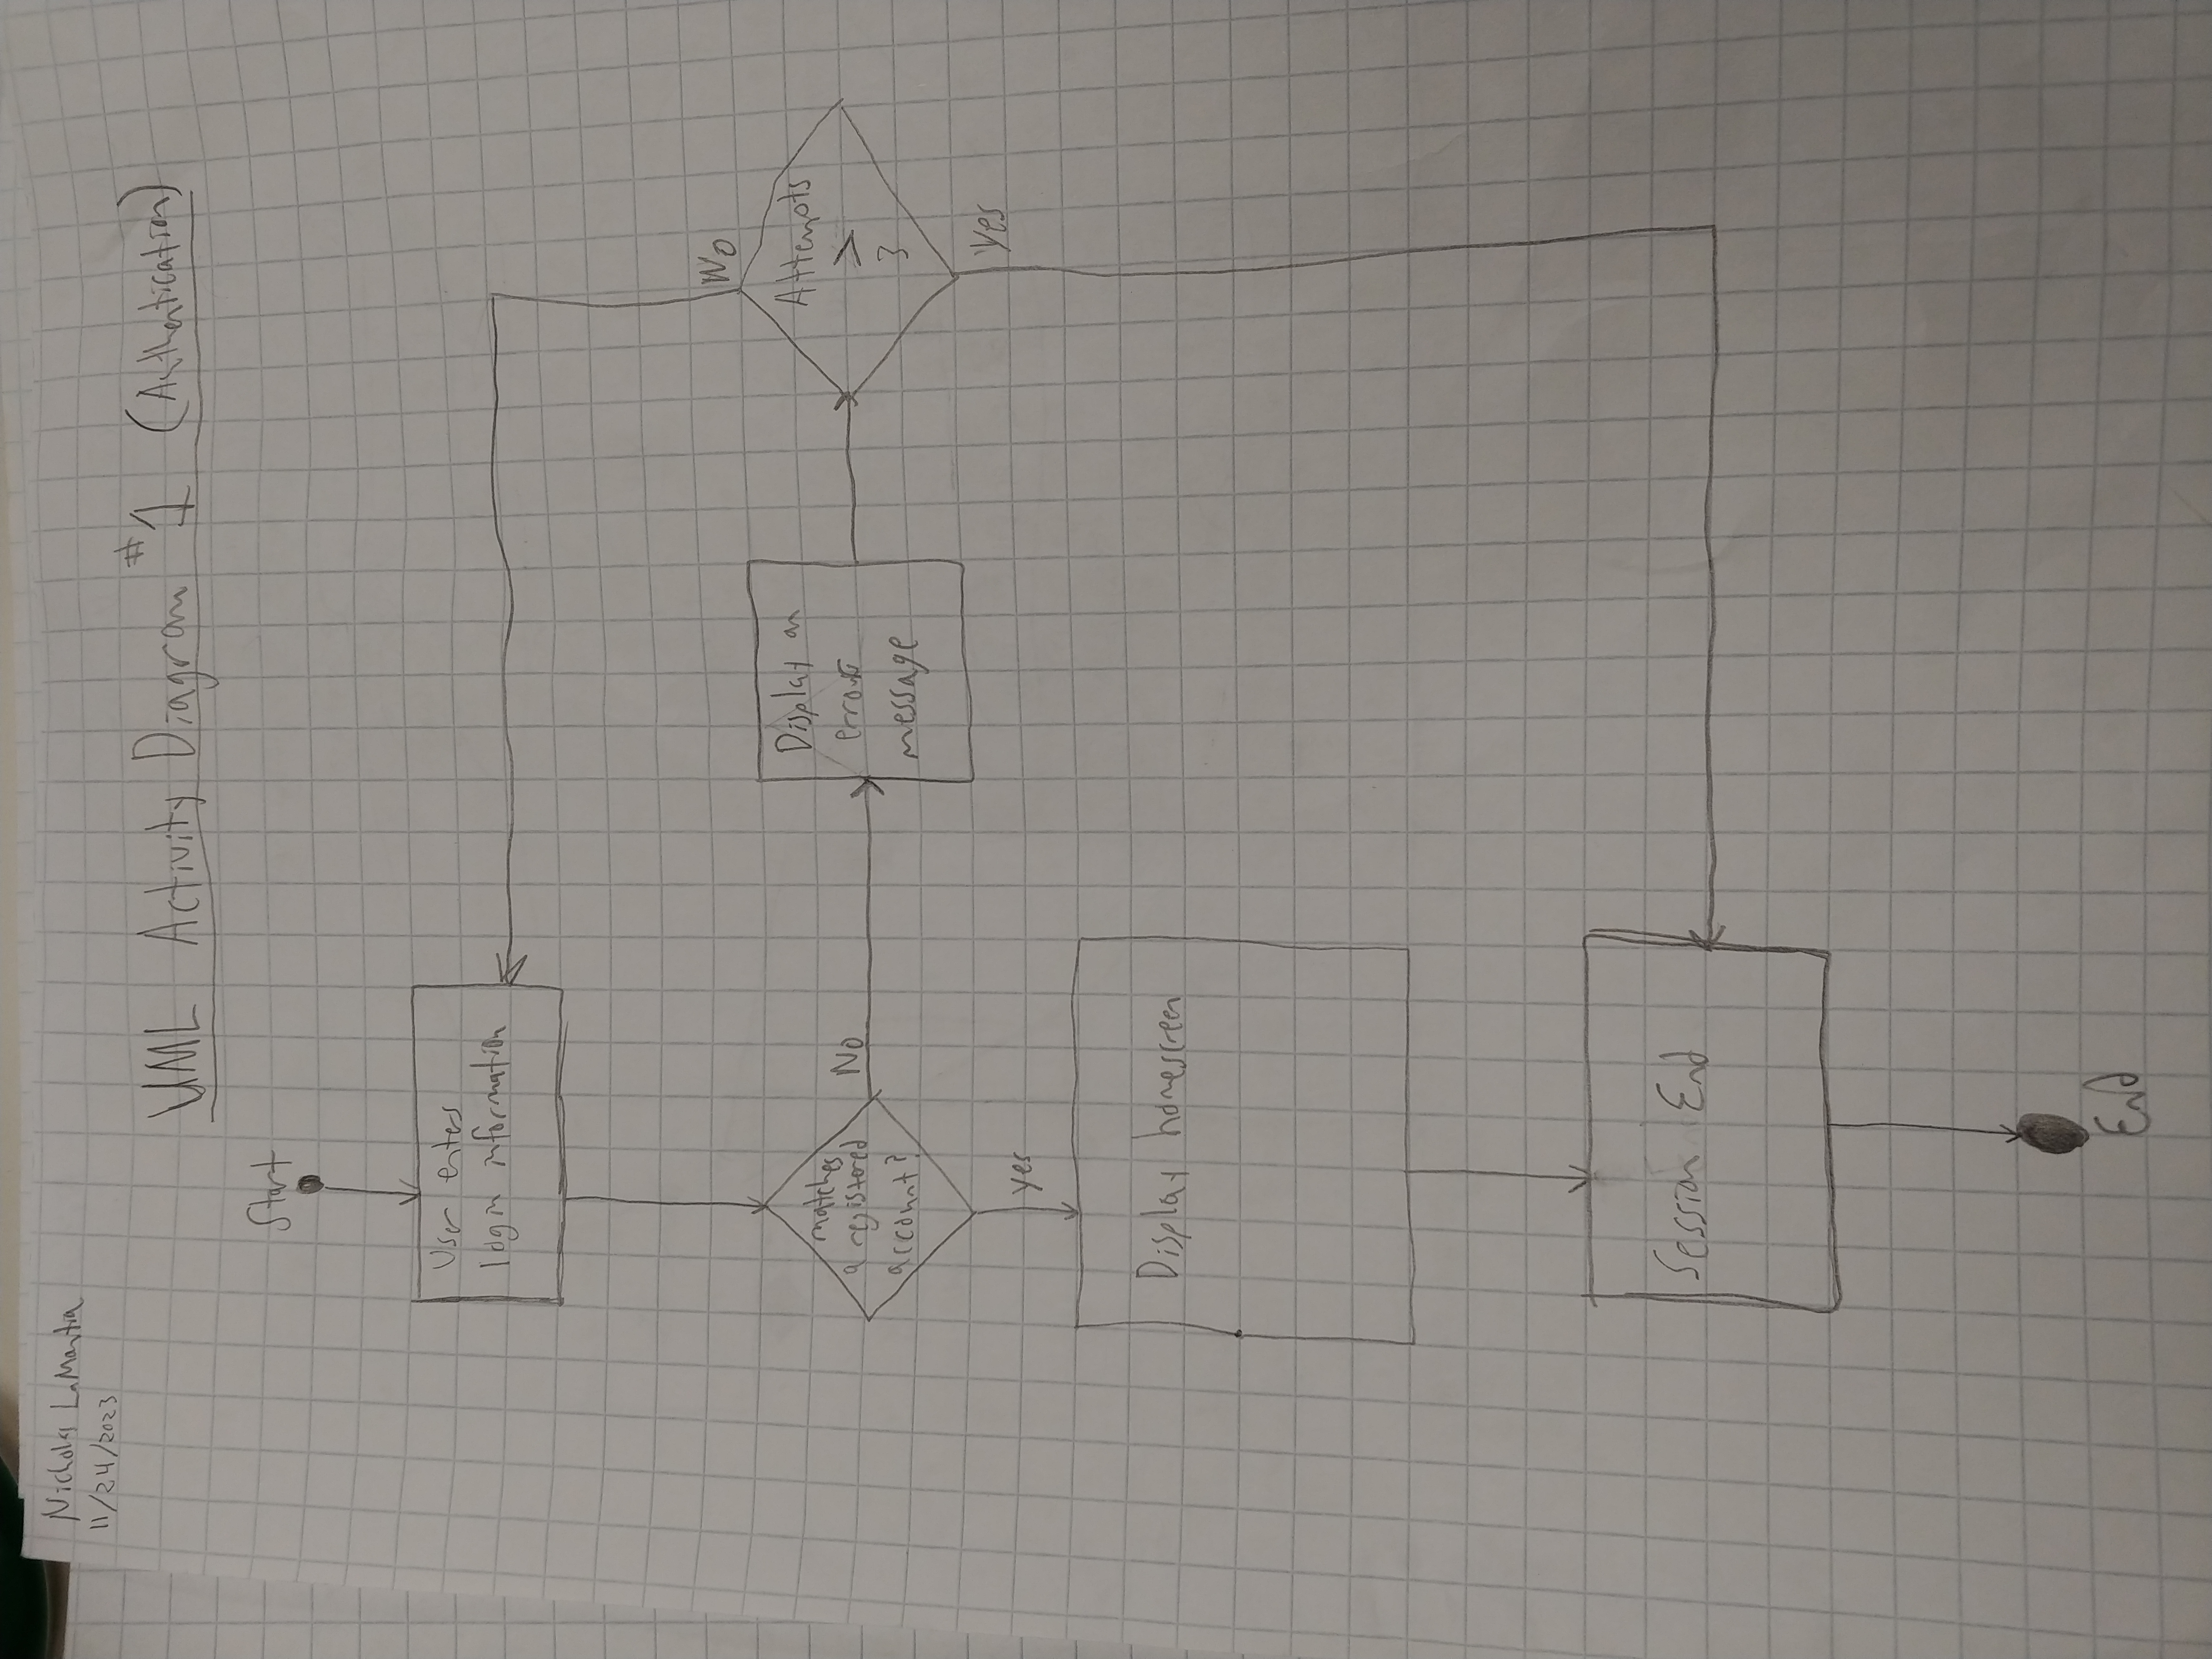 Nicholas LaMantia
11/24/2023
UML Activity Diagram #1 (Authentication)
Start
User enters
login information
No
matches
a registered
account?
No
Display an
error
message
Attempts
>
3
yes
Yes
Display homescreen
Session End
End